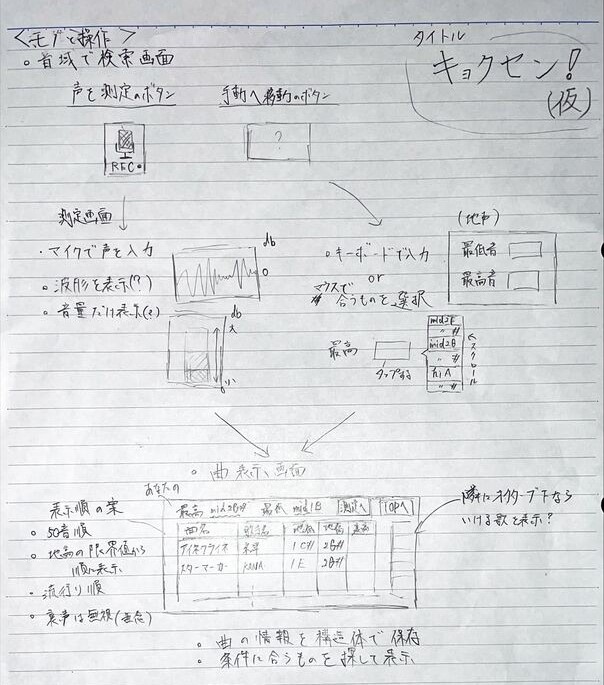 <モブと操作>
タイトル
キョクセン!
(仮)
○ 音域で検索画面
声を測定のボタン
手動へ移動のボタン
?
REC
測定画面
・マイクで声を入力
○ 波形を表示(?)
○ 音量だけ表示(?)
db
0
db
大
小
○ キーボードで入力
or
マウスで
合うものを選択
(地声)
最低音
最高音
最高
タップする
mid2F
〃 #
mid2G
〃 #
hiA
〃 #
スクロール
○ 曲表示画面
表示順の案
○ 50音順
○ 地声の限界値から
順に表示
○ 流行り順
○ 裏声は無視
あなたの
最高 mid2G# 最低 mid1B 測定へ TOPへ
曲名 歌手名 地低 地高 裏高
アイネクライネ 米津 1C# 2G#
スターマーカー KANA 1E 2G#
隣にオクターブ下なら
いける歌を表示?
○ 曲の情報を構造体で保存
○ 条件に合うものを探して表示